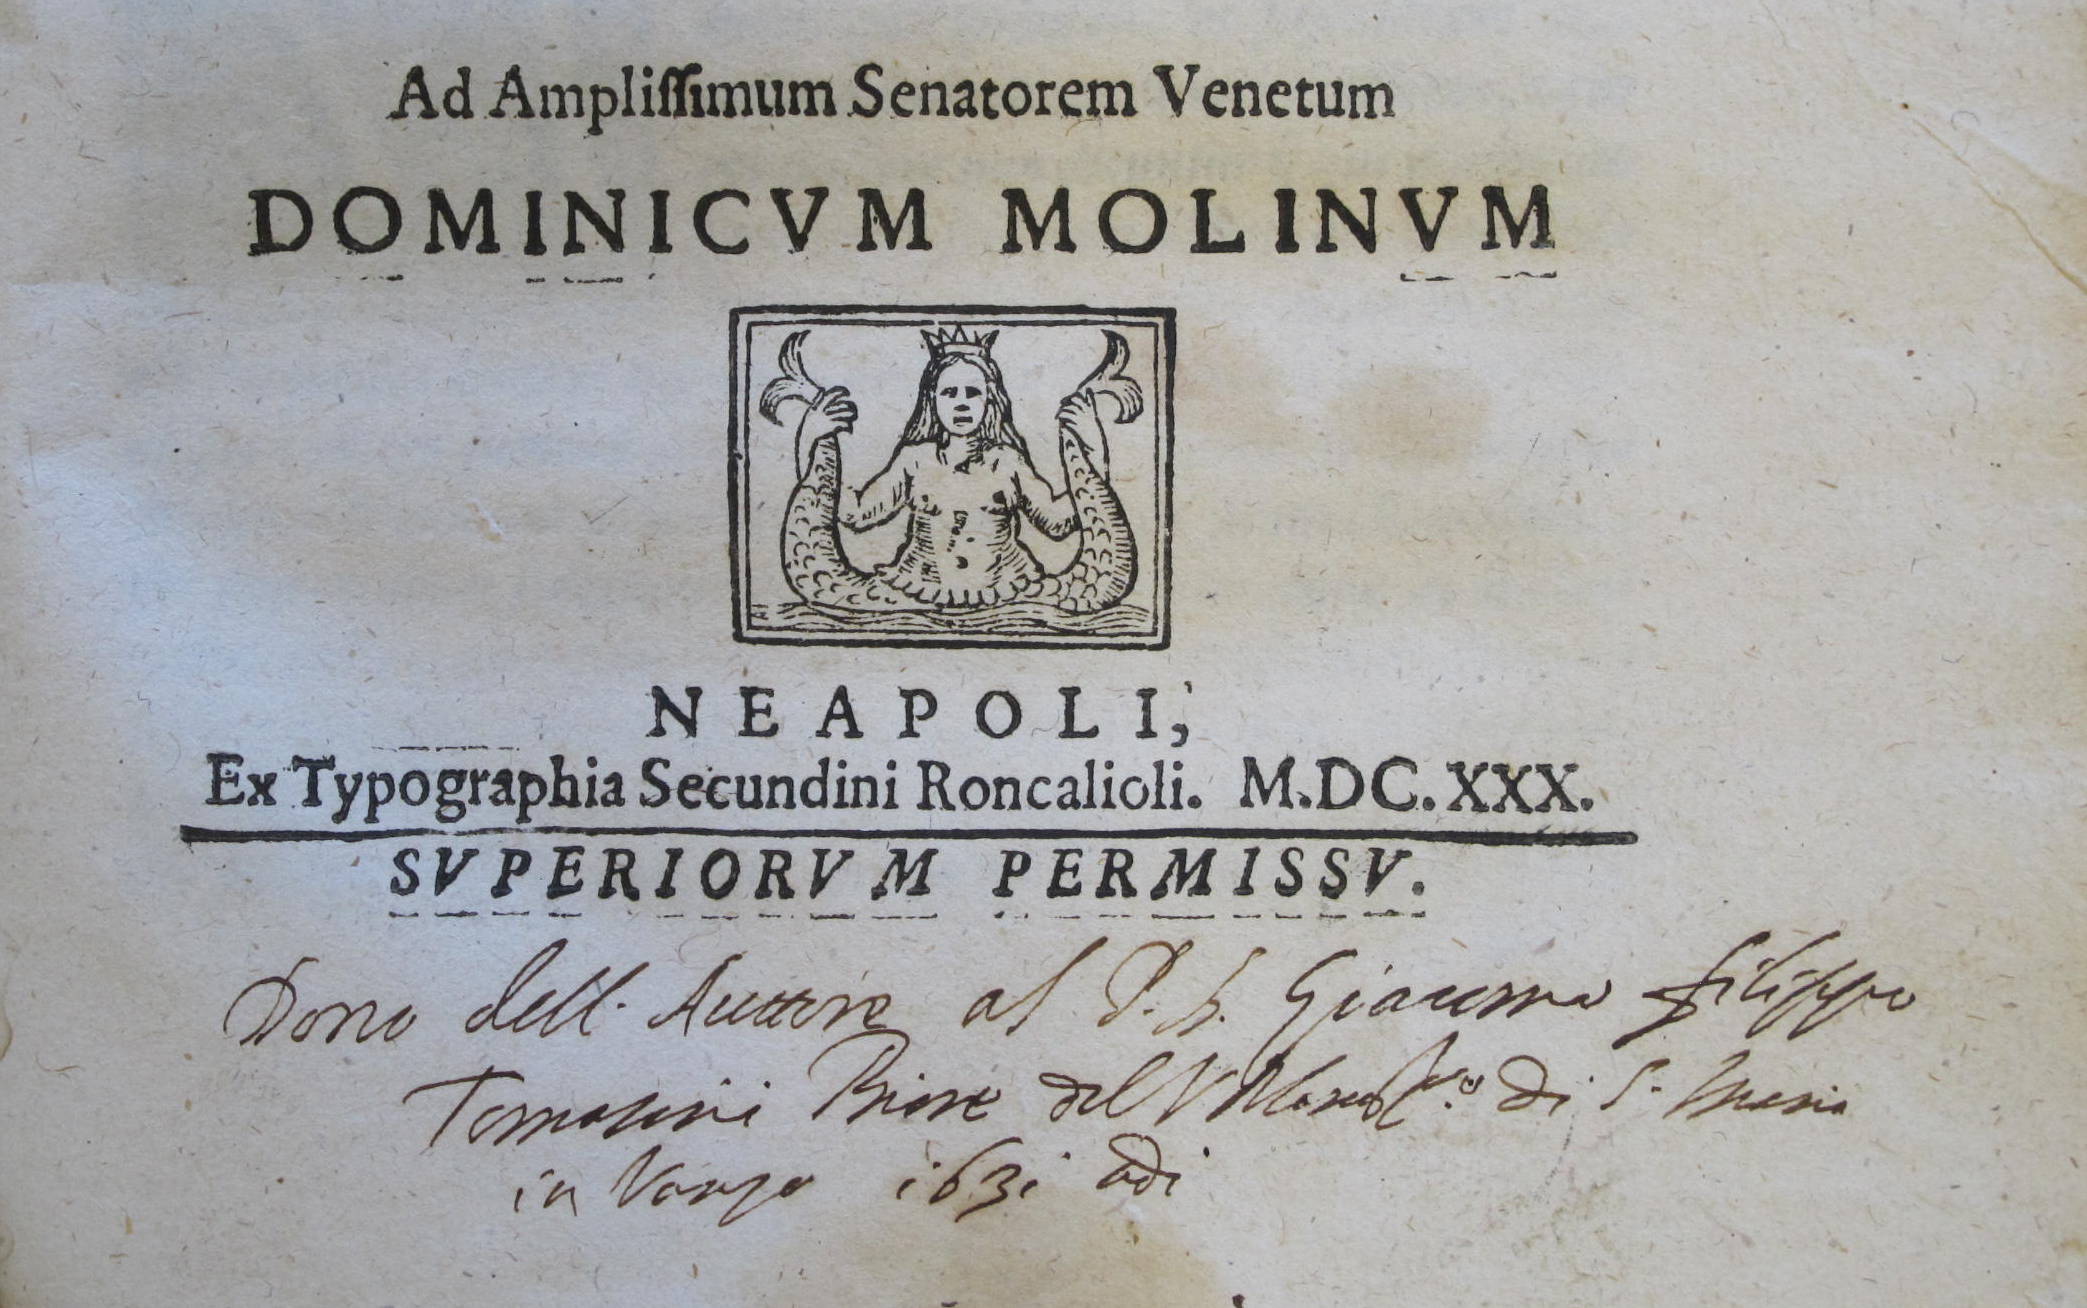 Ad Ampliſſimum Senatorem Venetum
DOMINICVM MOLINVM
NEAPOLI,
Ex Typographia Secundini Roncalioli. M.DC.XXX.
SVPERIORVM PERMISSV.
Dono dell. Auttore al P. Giacomo filippo
Tomasini Priore del di S. Maria
in Vanzo 1631 adi